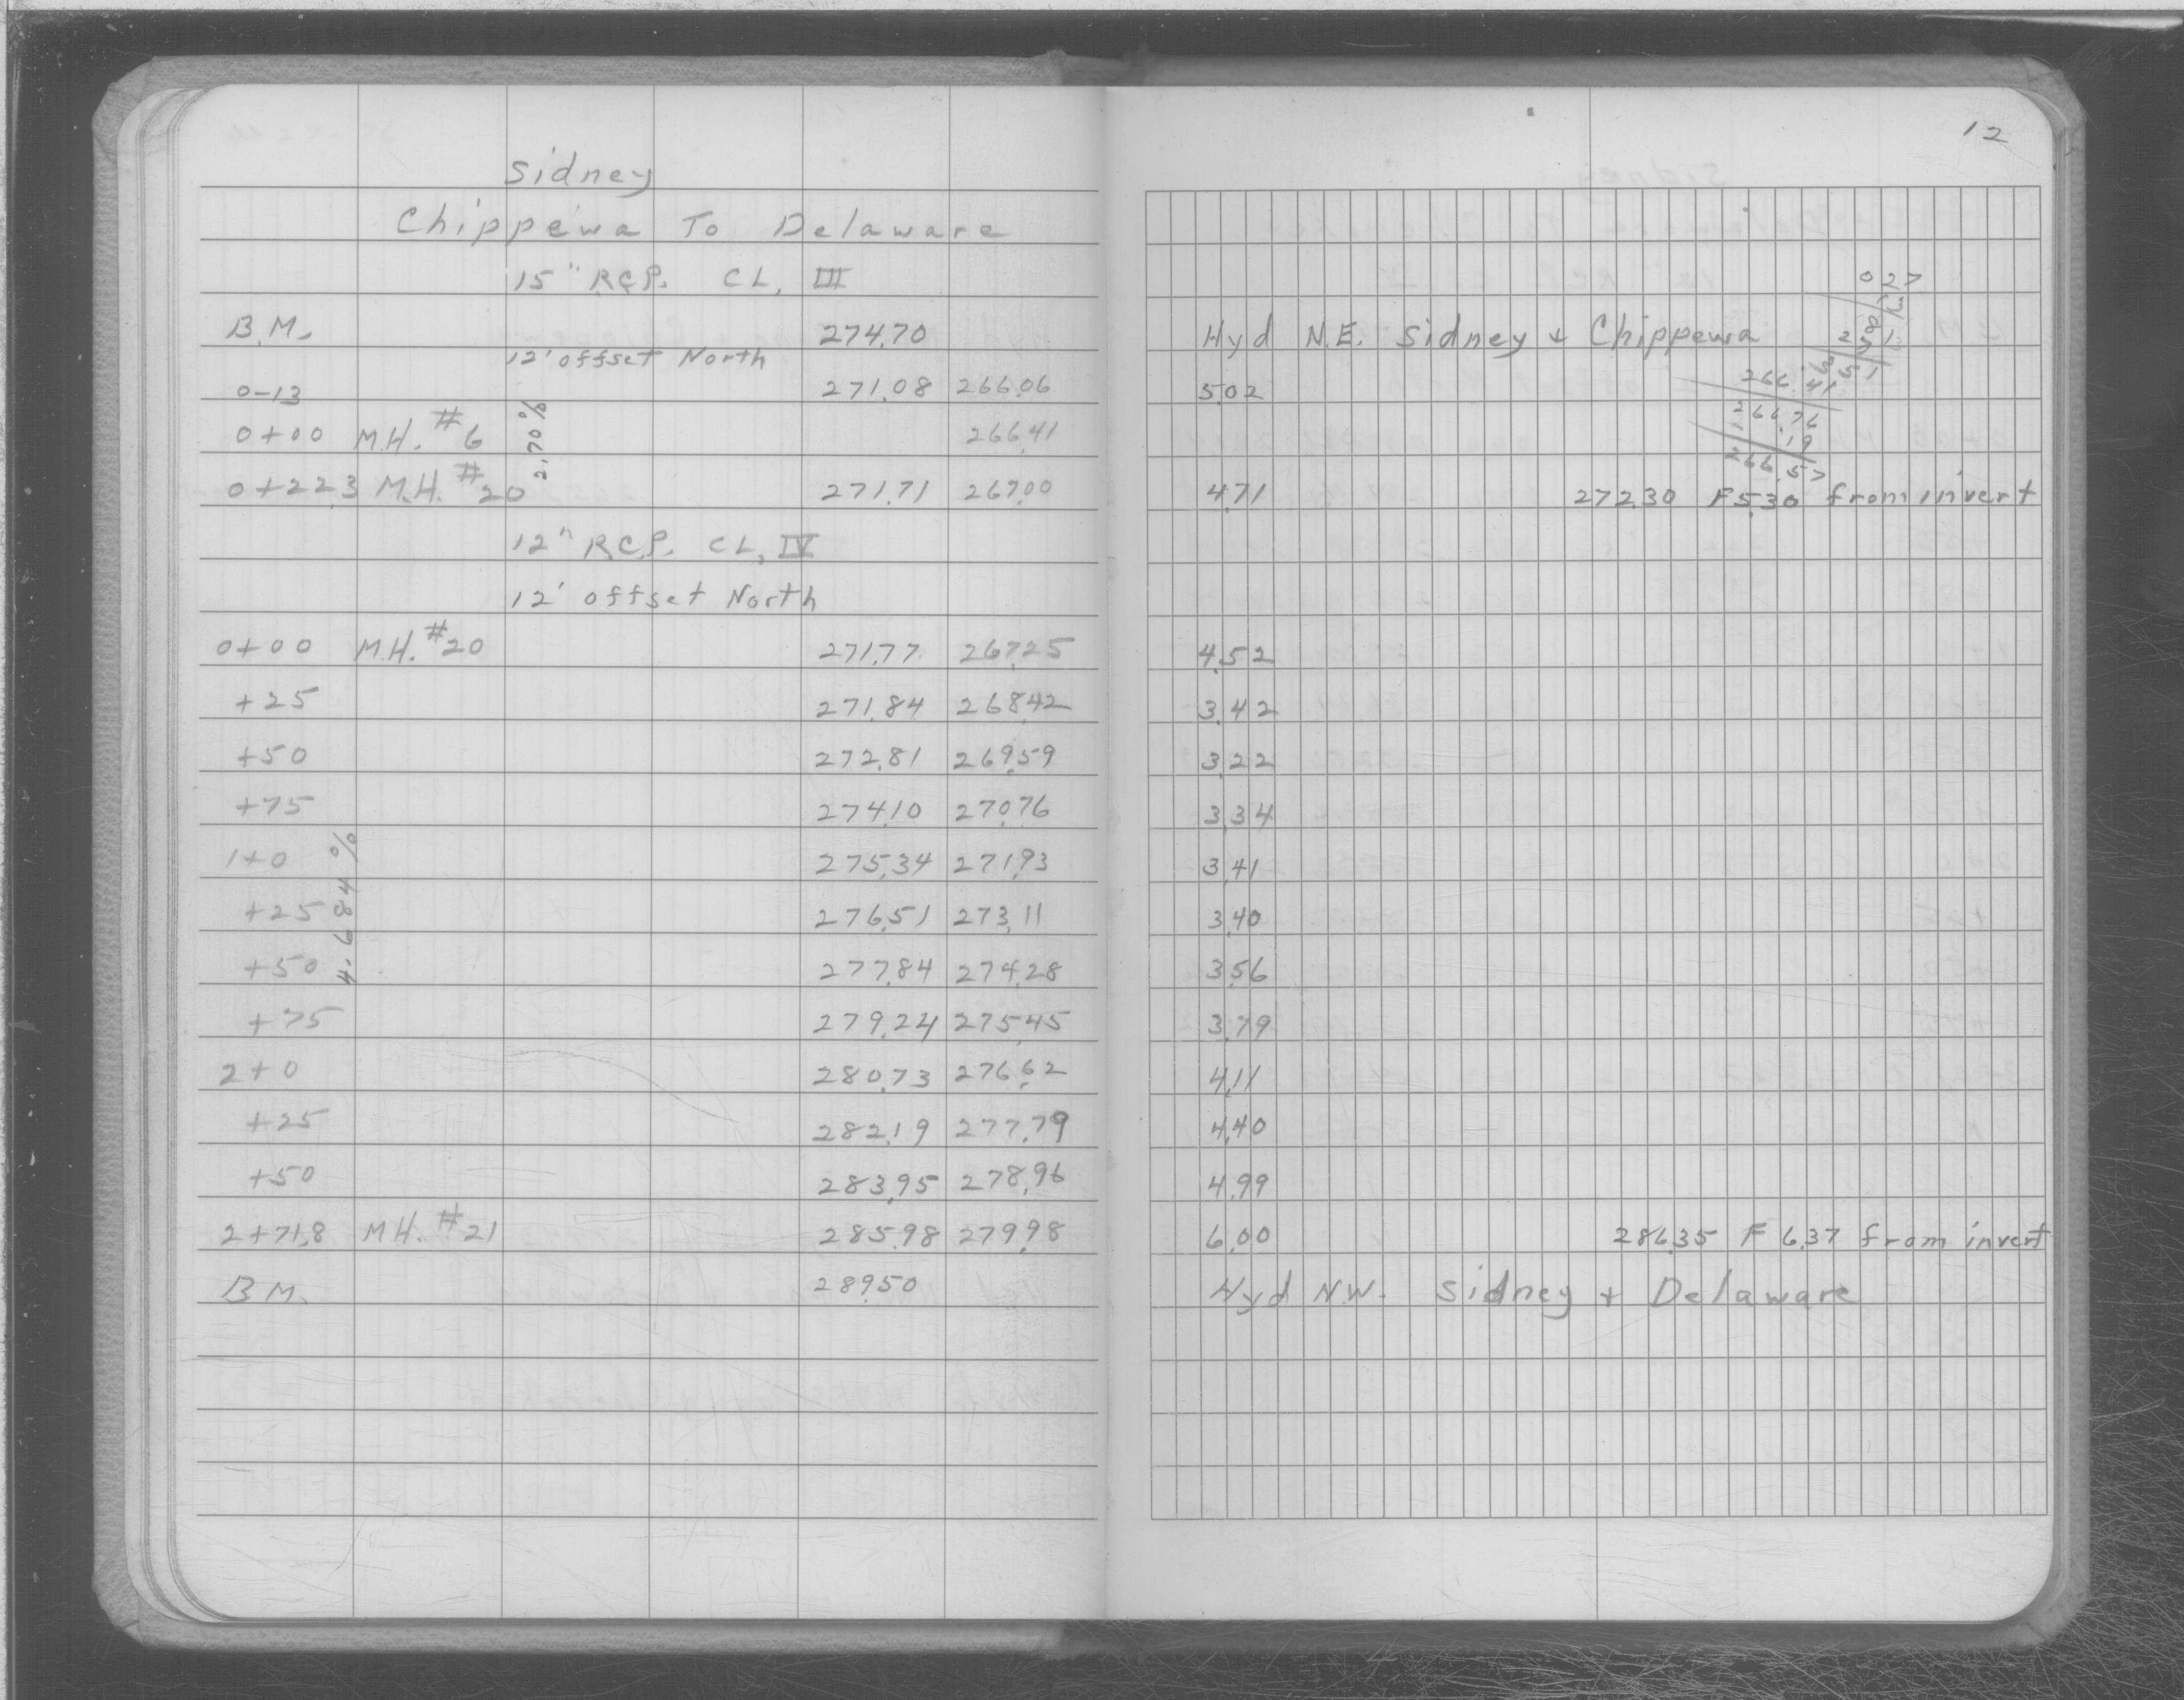 12
Sidney
Chippewa To Delaware
15" R.C.P. CL, III
027
B.M. 274.70 Hyd N.E. Sidney + Chippewa
12' offset North
0-13 271.08 266.06 5.02
266.41
0+00 M.H. #6 2.70% 266.41
266.76
.19
266.57
0+22.3 M.H. #20 271.71 267.00 4.71 272.30 F 5.30 from invert
12" R.C.P. CL, IV
12' offset North
0+00 M.H. #20 271.77 267.25 4.52
+25 271.84 268.42 3.42
+50 272.81 269.59 3.22
+75 274.10 270.76 3.34
1+0 275.34 271.93 3.41
4.684%
+25 276.51 273.11 3.40
+50 277.84 274.28 3.56
+75 279.24 275.45 3.79
2+0 280.73 276.62 4.11
+25 282.19 277.79 4.40
+50 283.95 278.96 4.99
2+71.8 M.H. #21 285.98 279.98 6.00 286.35 F 6.37 from invert
B.M. 289.50 Hyd N.W. Sidney + Delaware